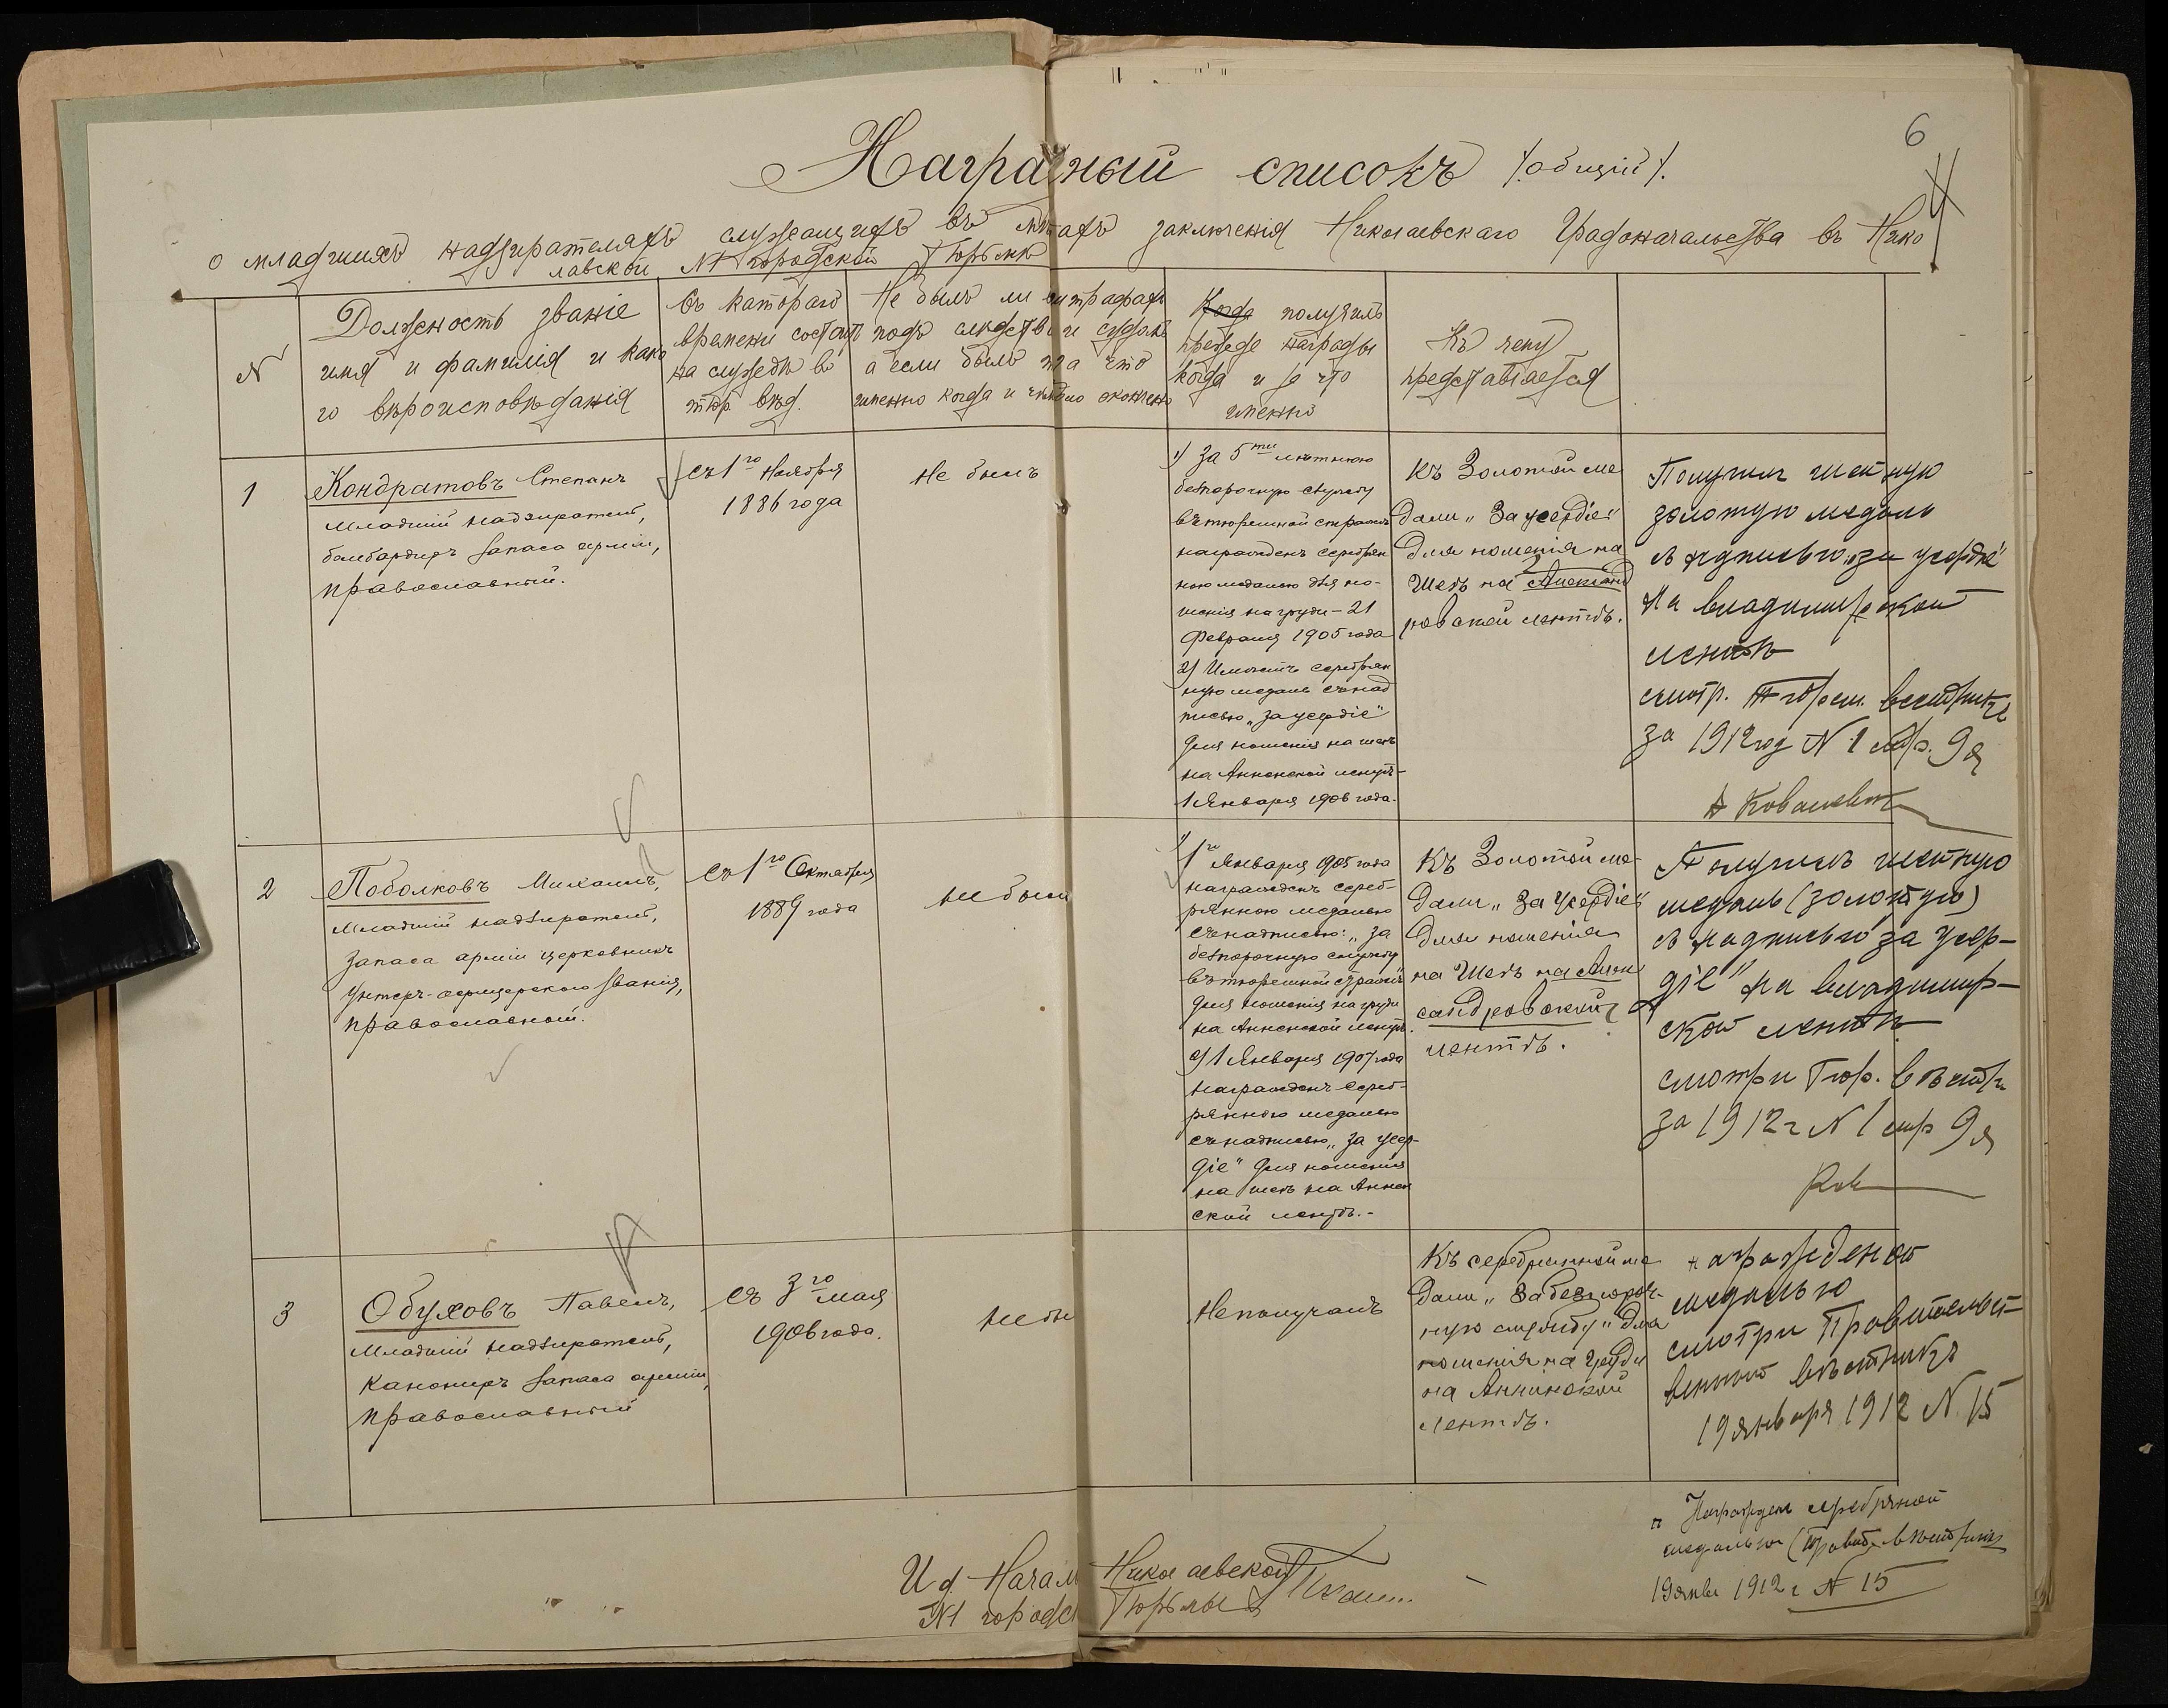 6
Наградный списокъ /общій/.
о младшихъ надзирателяхъ служащихъ въ мѣстахъ заключенія Николаевскаго Градоначальства въ Нико
лавской №1 городской Тюрьмѣ
№
Должность званіе
имя и фамилія и како
го вѣроисповѣданія
Съ котораго
времени состоитъ
на службѣ въ
тюр. вѣд.
Не былъ ли въ штрафахъ
подъ слѣдств. и судомъ
а если былъ то за что
именно когда и чѣмъ оно окончено
Когда получилъ
прежде награды
когда и за что
именно
Къ чему
представляется
1
Кондратовъ Степанъ
Младшій надзиратель,
бомбардиръ запаса арміи,
православный.
съ 1го Ноября
1886 года
Не былъ
1) За 5ти лѣтнюю
безпорочную службу
въ тюремной стражѣ
награжденъ серебрян
ною медалью для но-
шенія на груди - 21
Февраля 1905 года
2) Имѣетъ серебрян
ную медаль съ над
писью „за усердіе"
для ношенія на шеѣ
на Аннинской лентѣ-
1 Января 1906 года.
Къ Золотой ме
дали „За усердіе"
для ношенія на
шеѣ на Александ
ровской лентѣ.
Получил шейную
золотую медаль
с надписью „за усердіе"
на владимирской
лентѣ
смотр. Тюрем. вѣстникъ
за 1912 год № 1 стр. 9я
А Ковалевъ
2
Поболковъ Михаилъ,
Младшій надзиратель,
запаса арміи церковникъ
унтеръ-офицерскаго званія,
православный.
Съ 1го Октября
1889 года
не былъ
1) 1го Января 1905 года
награжденъ сереб-
рянною медалью
съ надписью: „за
безпорочную службу
въ тюремной стражѣ"
для ношенія на груди
на Аннинской лентѣ.
2) 1 Января 1907 года
награжденъ сереб-
рянною медалью
съ надписью „за усер-
діе" для ношенія
на шеѣ на Аннин
ской лентѣ.-
Къ Золотой ме-
дали „За Усердіе"
для ношенія
на шеѣ на Алек
сандровской
лентѣ.
Получилъ шейную
медаль (золотую)
с надписью „за усер-
діе" на владимир-
ской лентѣ
смотри Тюр. вѣстн.
за 1912 г № 1 стр 9я
Ков
3
Обуховъ Павелъ,
Младшій надзиратель,
канониръ запаса арміи,
православный
съ 3го мая
1906 года.
не бы
Не получалъ
Къ серебрянной ме
дали „За безпороч-
ную службу" для
ношенія на груди
на Аннинской
лентѣ.
награжденъ
медалью
смотри Правительст-
венный вѣстникъ
19 января 1912 № 15
Награжден серебряной
медалью (Правит. вѣстникъ
19 янв 1912 г № 15
И д. Начал Николаевской
№1 городс Тюрьмы